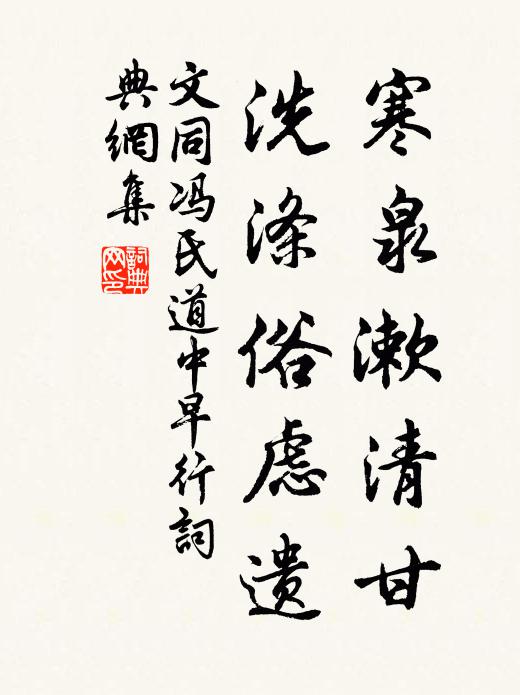 寒泉漱清甘
洗涤俗虑遗
文同冯氏道中早行詞
典網集
詞典网印